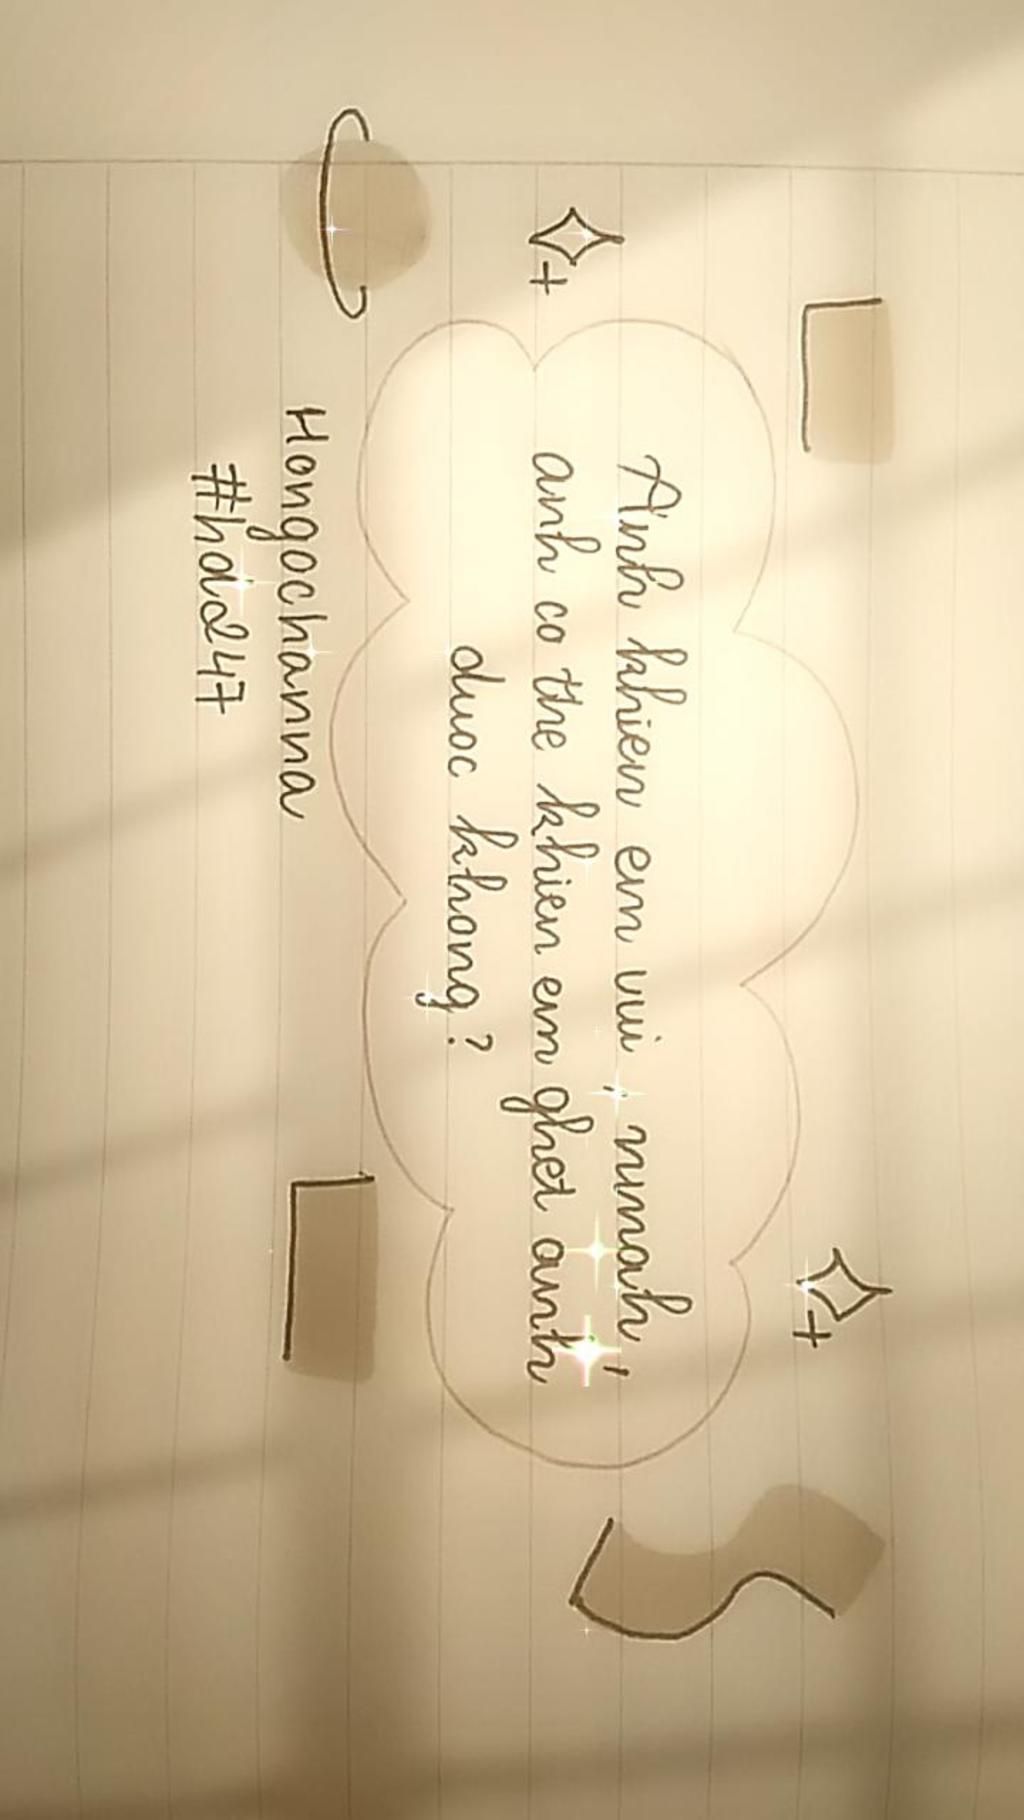 Anh khien em vui , numah'
anh co the khien em ghet anh
duoc khong?
Hongochanna
#hdd247